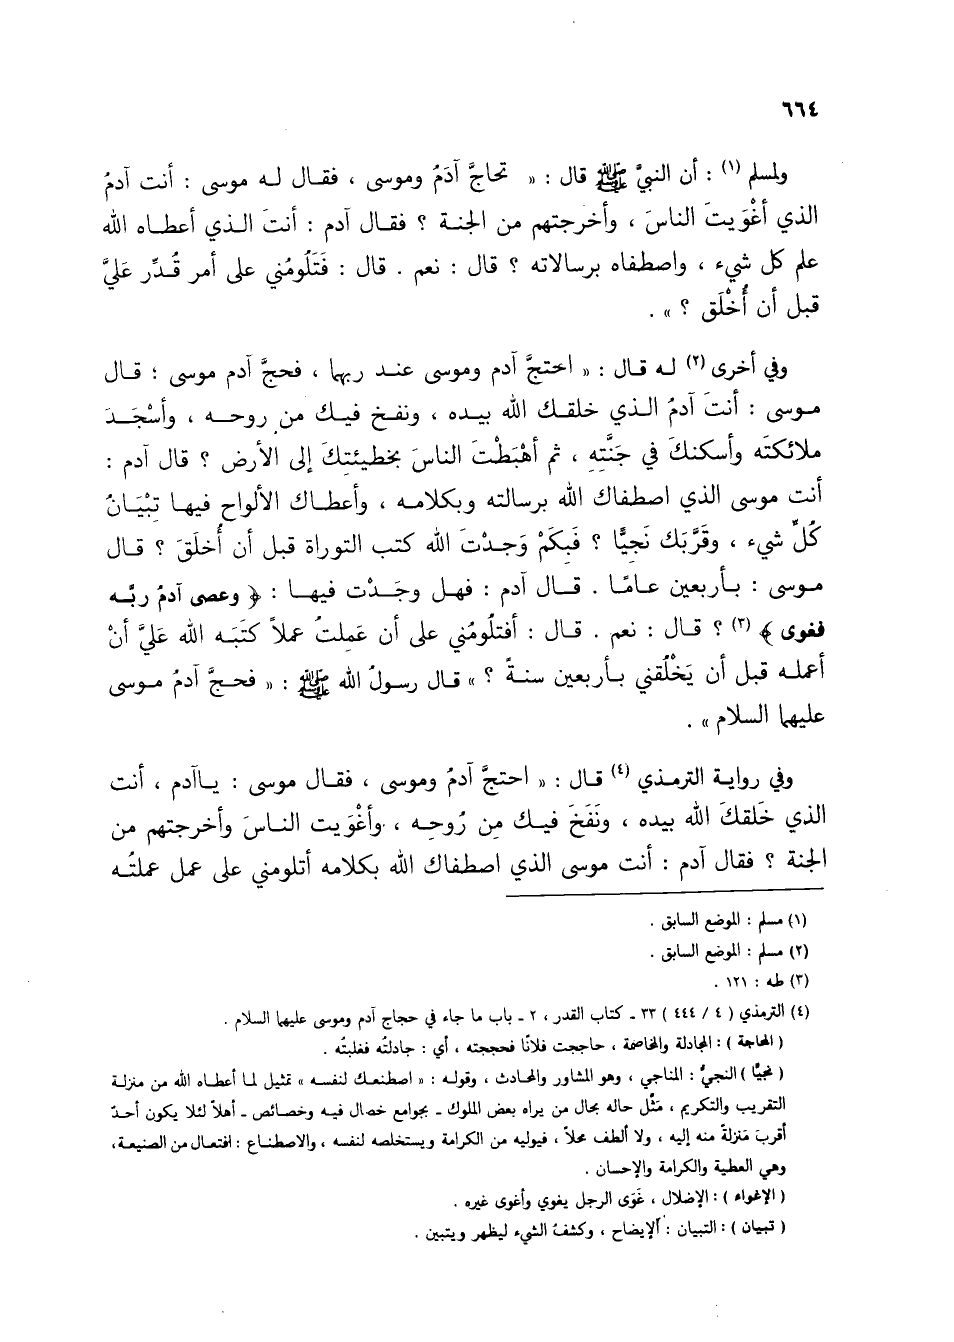 ٦٦٤
ولمسلم (١) : أن النبيَّ ﷺ قال : « تحاجَّ آدَمُ وموسى ، فقـال لـه موسى : أنت آدمُ
الذي أغْوَيـتَ النـاسَ ، وأخرجتهم من الجنـة ؟ فقـال آدم : أنتَ الـذي أعطـاه الله
علم كل شيء ، واصطفاه برسالاته ؟ قال : نعم . قال : فَتَلُومُني على أمر قُـدِّر عَليَّ
قبل أن أُخْلَق ؟ » .
وفي أخرى (٢) لـه قـال : « احتجَّ آدم وموسى عنـد ربهما ، فحجَّ آدم موسى ؛ قـال
مـوسى : أنتَ آدمُ الـذي خلقـك الله بيـده ، ونفـخ فيـك من روحـــه ، وأسْجَــدَ
ملائكتَه وأسكنكَ في جَنَّتِهِ ، ثم أهْبَطْتَ الناسَ بخطيئتِكَ إلى الأرض ؟ قال آدم :
أنت موسى الذي اصطفاك الله برسالته وبكلامـه ، وأعطـاك الألواح فيهـا تِبْيَـانُ
كُلِّ شيء ، وقَرَّبَك نَجيًّا ؟ فَبِكَمْ وَجـدْتَ الله كتب التوراة قبل أن أُخلَقَ ؟ قـال
مـوسى : بـأربعين عـامًـا . قــال آدم : فهـل وجَـدْت فيهـا : ﴿ وعصى آدمُ ربَّـه
فغوى ﴾ (٣) ؟ قـال : نعم . قـال : أفتلُومُني على أن عَمِلتُ عملاً كتَبَـه الله عَليَّ أنْ
أعملـه قبل أن يَخْلُقني بـأربعين سنـةً ؟ » قـال رسـولُ الله ﷺ : « فحـجَّ آدمُ مـوسى
عليهما السلام » .
وفي روايـة الترمـذي (٤) قـال : « احتجَّ آدمُ وموسى ، فقـال موسى : يـاآدم ، أنت
الذي خَلقكَ الله بيده ، ونَفَخَ فيـك مِن رُوحِـه ، وأغْوَيت النـاسَ وأخرجتهم من
الجنة ؟ فقال آدم : أنت موسى الذي اصطفاك الله بكلامه أتلومني على عمل عملتُـه
(١) مسلم : الموضع السابق .
(٢) مسلم : الموضع السابق .
(٣) طه : ١٢١ .
(٤) الترمذي ( ٤ / ٤٤٤ ) ٣٣ ـ كتاب القدر ، ٢ ـ باب ما جاء في حجاج آدم وموسى عليهما السلام .
( المحاجة ) : المجادلة والمخاصمة ، حاججت فلانًا فحججته ، أي : جادلتُه فغلبتُه .
( نجيًّا ) النجيُّ : المناجي ، وهو المشاور والمحادث ، وقولـه : « اصطنعـك لنفسـه » تمثيل لما أعطاه الله من منزلة
التقريب والتكريم ، مَثَّل حاله بحال من يراه بعض الملوك ـ بجوامع خصال فيه وخصائص ـ أهلاً لئلا يكون أحدٌ
أقربَ مَنزلةً منه إليه ، ولا ألطف محلاً ، فيوليه من الكرامة ويستخلصه لنفسه ، والاصطناع : افتعال من الصنيعة ،
وهي العطية والكرامة والإحسان .
( الإغواء ) : الإضلال ، غَوَى الرجل يغوي وأغوى غيره .
( تبيان ) : التبيان : الإيضاح ، وكشفُ الشيء ليظهر ويتبين .